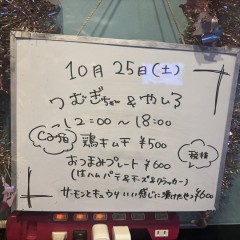 10月25日(土)
つむぎちゃん&やしろ
12:00〜18:00
Cafe
鶏キムチ ¥500
税抜
おつまみプレート ¥600
(生ハムパテ&チーズ&クラッカー)
サーモンとキュウリいい感じに漬けたやつ¥600